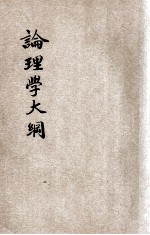 論理學大綱